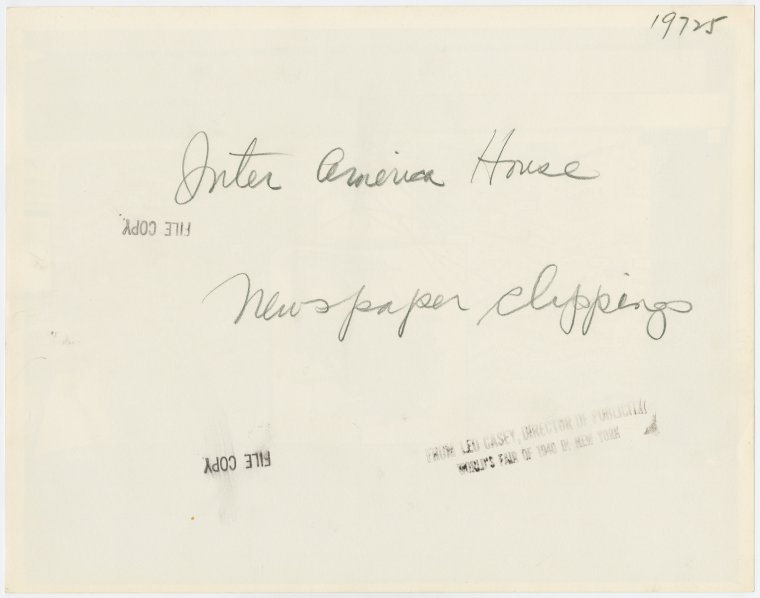 19725
Inter America House
FILE COPY
Newspaper clippings
FROM LEO CASEY, DIRECTOR OF PUBLICITY
WORLD'S FAIR OF 1940 IN NEW YORK
FILE COPY